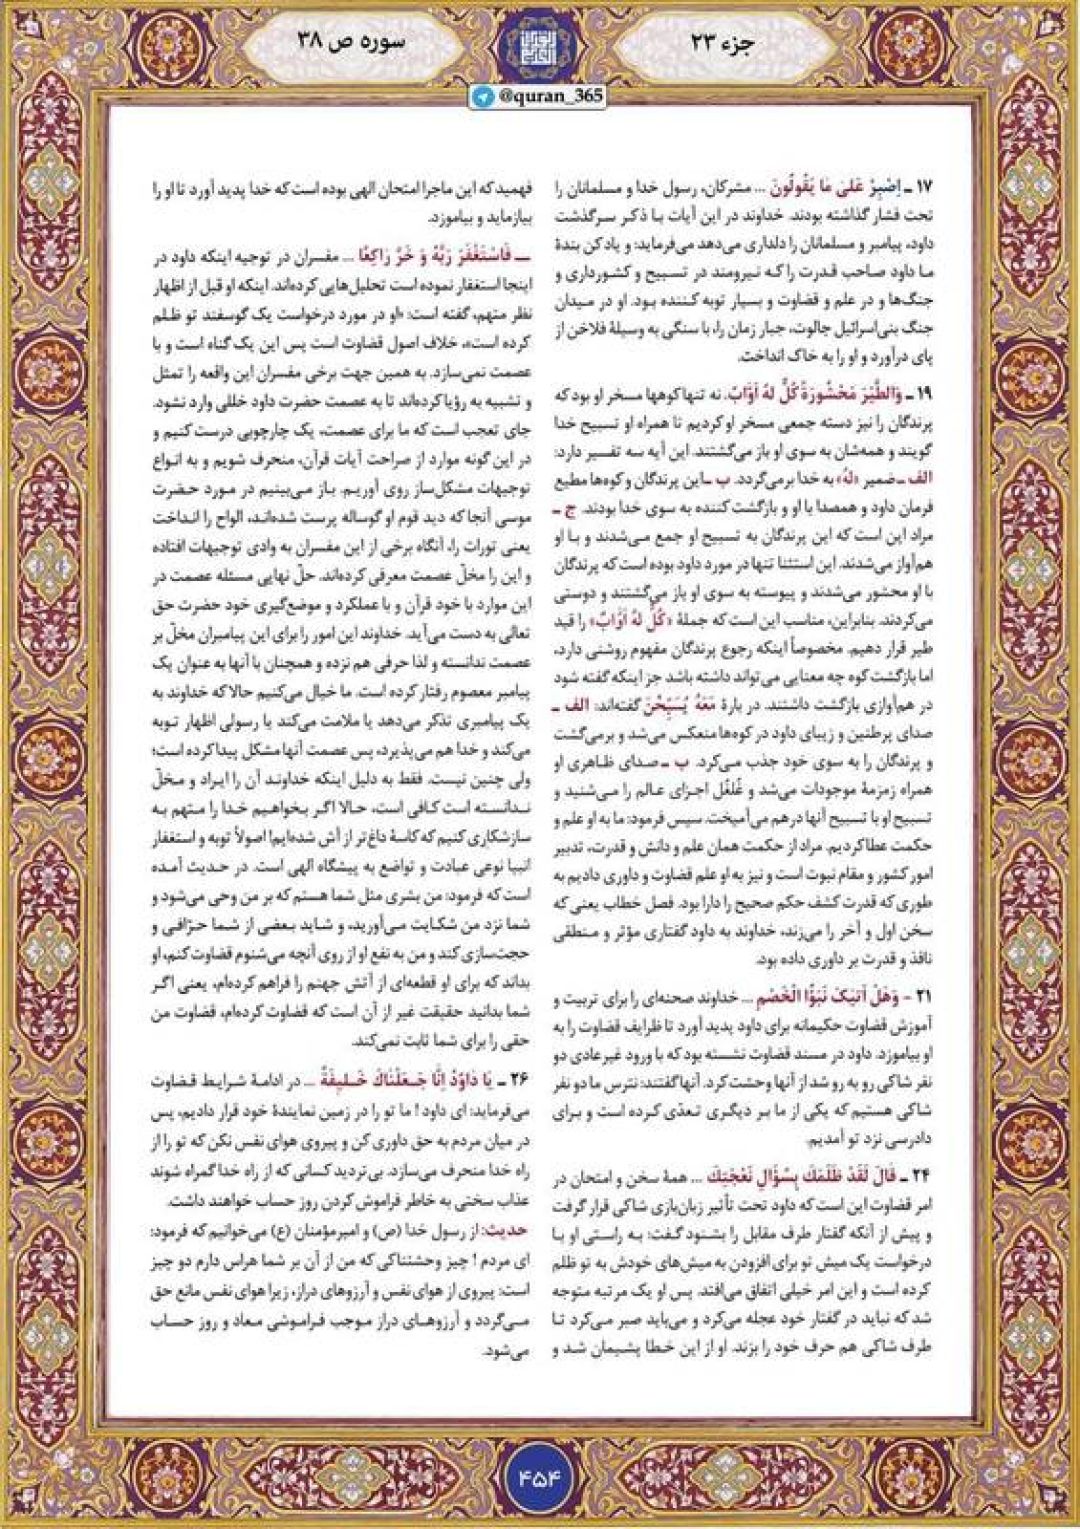 جزء ۲۳
سوره ص ۳۸
@quran_365
۱۷ ـ اِصْبِرْ عَلىٰ مَا يَقُولُونَ ... مشرکان، رسول خدا و مسلمانان را
تحت فشار گذاشته بودند. خداوند در این آیات با ذکر سرگذشت
داود، پیامبر و مسلمانان را دلداری می‌دهد می‌فرماید: و یاد کن بندهٔ
ما داود صاحب قدرت را که نیرومند در تسبیح و کشورداری و
جنگ‌ها و در علم و قضاوت و بسیار توبه کننده بود. او در میدان
جنگ بنی‌اسرائیل جالوت، جبار زمان را، با سنگی به وسیلهٔ فلاخن از
پای درآورد و او را به خاک انداخت.
۱۹ ـ وَالطَّيْرَ مَحْشُورَةً كُلٌّ لَهُ أَوَّابٌ. نه تنها کوهها مسخر او بود که
پرندگان را نیز دسته جمعی مسخر او کردیم تا همراه او تسبیح خدا
گویند و همه‌شان به سوی او باز می‌گشتند. این آیه سه تفسیر دارد:
الف ـ ضمیر «لَهُ» به خدا برمی‌گردد. ب ـ این پرندگان و کوه‌ها مطیع
فرمان داود و همصدا با او و بازگشت کننده به سوی خدا بودند. ج ـ
مراد این است که این پرندگان به تسبیح او جمع می‌شدند و با او
هم‌آواز می‌شدند. این استثنا تنها در مورد داود بوده است که پرندگان
با او محشور می‌شدند و پیوسته به سوی او باز می‌گشتند و دوستی
می‌کردند. بنابراین، مناسب این است که جملهٔ «كُلٌّ لَهُ أَوَّابٌ» را قید
طیر قرار دهیم. مخصوصاً اینکه رجوع پرندگان مفهوم روشنی دارد،
اما بازگشت کوه چه معنایی می‌تواند داشته باشد جز اینکه گفته شود
در هم‌آوازی بازگشت داشتند. در بارهٔ مَعَهُ يُسَبِّحْنَ گفته‌اند: الف ـ
صدای پرطنین و زیبای داود در کوه‌ها منعکس می‌شد و برمی‌گشت
و پرندگان را به سوی خود جذب می‌کرد. ب ـ صدای ظاهری او
همراه زمزمهٔ موجودات می‌شد و غُلغُل اجزای عالم را می‌شنید و
تسبیح او با تسبیح آنها درهم می‌آمیخت. سپس فرمود: ما به او علم و
حکمت عطا کردیم. مراد از حکمت همان علم و دانش و قدرت، تدبیر
امور کشور و مقام نبوت است و نیز به او علم قضاوت و داوری دادیم به
طوری که قدرت کشف حکم صحیح را دارا بود. فصل خطاب یعنی که
سخن اول و آخر را می‌زند، خداوند به داود گفتاری مؤثر و منطقی
نافذ و قدرت بر داوری داده بود.
۲۱ - وَهَلْ أَتيٰكَ نَبَؤُا الْخَصْمِ ... خداوند صحنه‌ای را برای تربیت و
آموزش قضاوت حکیمانه برای داود پدید آورد تا ظرایف قضاوت را به
او بیاموزد. داود در مسند قضاوت نشسته بود که با ورود غیرعادی دو
نفر شاکی رو به رو شد از آنها وحشت کرد. آنها گفتند: نترس ما دو نفر
شاکی هستیم که یکی از ما بر دیگری تعدّی کرده است و برای
دادرسی نزد تو آمدیم.
۲۴ ـ قَالَ لَقَدْ ظَلَمَكَ بِسُؤَالِ نَعْجَتِكَ ... همهٔ سخن و امتحان در
امر قضاوت این است که داود تحت تأثیر زبان‌بازی شاکی قرار گرفت
و پیش از آنکه گفتار طرف مقابل را بشنود گفت: به راستی او با
درخواست یک میش تو برای افزودن به میش‌های خودش به تو ظلم
کرده است و این امر خیلی اتفاق می‌افتد. پس او یک مرتبه متوجه
شد که نباید در گفتار خود عجله می‌کرد و می‌باید صبر می‌کرد تا
طرف شاکی هم حرف خود را بزند. او از این خطا پشیمان شد و
فهمید که این ماجرا امتحان الهی بوده است که خدا پدید آورد تا او را
بیازماید و بیاموزد.
ــ فَاسْتَغْفَرَ رَبَّهُ وَ خَرَّ رَاكِعًا ... مفسران در توجیه اینکه داود در
اینجا استغفار نموده است تحلیل‌هایی کرده‌اند. اینکه او قبل از اظهار
نظر متهم، گفته است: «او در مورد درخواست یک گوسفند تو ظلم
کرده است»، خلاف اصول قضاوت است پس این یک گناه است و با
عصمت نمی‌سازد. به همین جهت برخی مفسران این واقعه را تمثل
و تشبیه به رؤیا کرده‌اند تا به عصمت حضرت داود خللی وارد نشود.
جای تعجب است که ما برای عصمت، یک چارچوبی درست کنیم و
در این گونه موارد از صراحت آیات قرآن، منحرف شویم و به انواع
توجیهات مشکل‌ساز روی آوریم. باز می‌بینیم در مورد حضرت
موسی آنجا که دید قوم او گوساله پرست شده‌اند، الواح را انداخت
یعنی تورات را، آنگاه برخی از این مفسران به وادی توجیهات افتاده
و این را مخلّ عصمت معرفی کرده‌اند. حلّ نهایی مسئله عصمت در
این موارد با خود قرآن و با عملکرد و موضع‌گیری خود حضرت حق
تعالی به دست می‌آید. خداوند این امور را برای این پیامبران مخلّ بر
عصمت ندانسته و لذا حرفی هم نزده و همچنان با آنها به عنوان یک
پیامبر معصوم رفتار کرده است. ما خیال می‌کنیم حالا که خداوند به
یک پیامبری تذکر می‌دهد یا ملامت می‌کند یا رسولی اظهار توبه
می‌کند و خدا هم می‌پذیرد، پس عصمت آنها مشکل پیدا کرده است؛
ولی چنین نیست. فقط به دلیل اینکه خداوند آن را ایراد و مخلّ
ندانسته است کافی است، حالا اگر بخواهیم خدا را متهم به
سازشکاری کنیم که کاسهٔ داغ‌تر از آش شده‌ایم! اصولاً توبه و استغفار
انبیا نوعی عبادت و تواضع به پیشگاه الهی است. در حدیث آمده
است که فرمود: من بشری مثل شما هستم که بر من وحی می‌شود و
شما نزد من شکایت می‌آورید، و شاید بعضی از شما حرّافی و
حجت‌سازی کند و من به نفع او از روی آنچه می‌شنوم قضاوت کنم، او
بداند که برای او قطعه‌ای از آتش جهنم را فراهم کرده‌ام، یعنی اگر
شما بدانید حقیقت غیر از آن است که قضاوت کرده‌ام، قضاوت من
حقی را برای شما ثابت نمی‌کند.
۲۶ ـ يَا دَاوُدُ إِنَّا جَعَلْنَاكَ خَلِيفَةً ... در ادامهٔ شرایط قضاوت
می‌فرماید: ای داود! ما تو را در زمین نمایندهٔ خود قرار دادیم، پس
در میان مردم به حق داوری کن و پیروی هوای نفس نکن که تو را از
راه خدا منحرف می‌سازد. بی‌تردید کسانی که از راه خدا گمراه شوند
عذاب سختی به خاطر فراموش کردن روز حساب خواهند داشت.
حدیث: از رسول خدا (ص) و امیرمؤمنان (ع) می‌خوانیم که فرمود:
ای مردم! چیز وحشتناکی که من از آن بر شما هراس دارم دو چیز
است: پیروی از هوای نفس و آرزوهای دراز، زیرا هوای نفس مانع حق
می‌گردد و آرزوهای دراز موجب فراموشی معاد و روز حساب
می‌شود.
۴۵۴